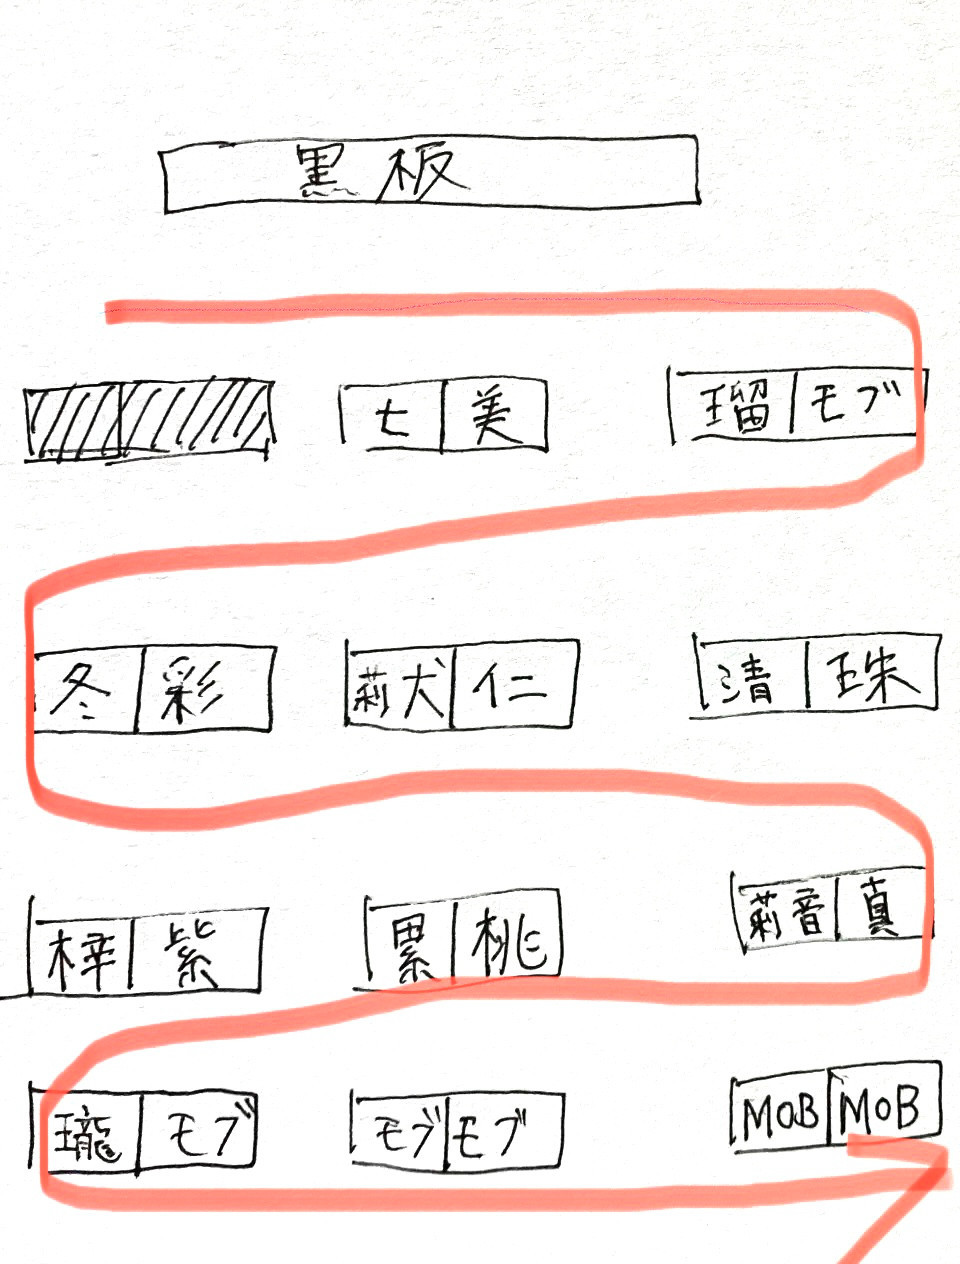 黒板
七 美 瑠 モブ
冬 彩 莉犬 仁 清 珠
梓 紫 累 桃 莉音 真
瓏 モブ モブ モブ MOB MOB